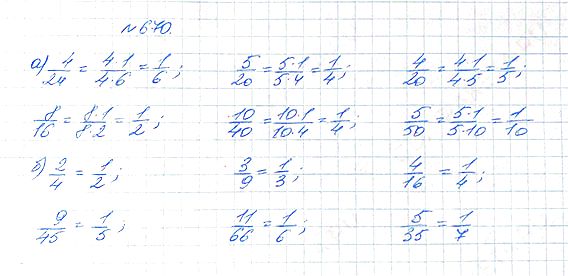 №670.
а) 4/24 = 4·1/4·6 = 1/6; 5/20 = 5·1/5·4 = 1/4; 4/20 = 4·1/4·5 = 1/5;
8/16 = 8·1/8·2 = 1/2; 10/40 = 10·1/10·4 = 1/4; 5/50 = 5·1/5·10 = 1/10
б) 2/4 = 1/2; 3/9 = 1/3; 4/16 = 1/4;
9/45 = 1/5; 11/66 = 1/6; 5/35 = 1/7